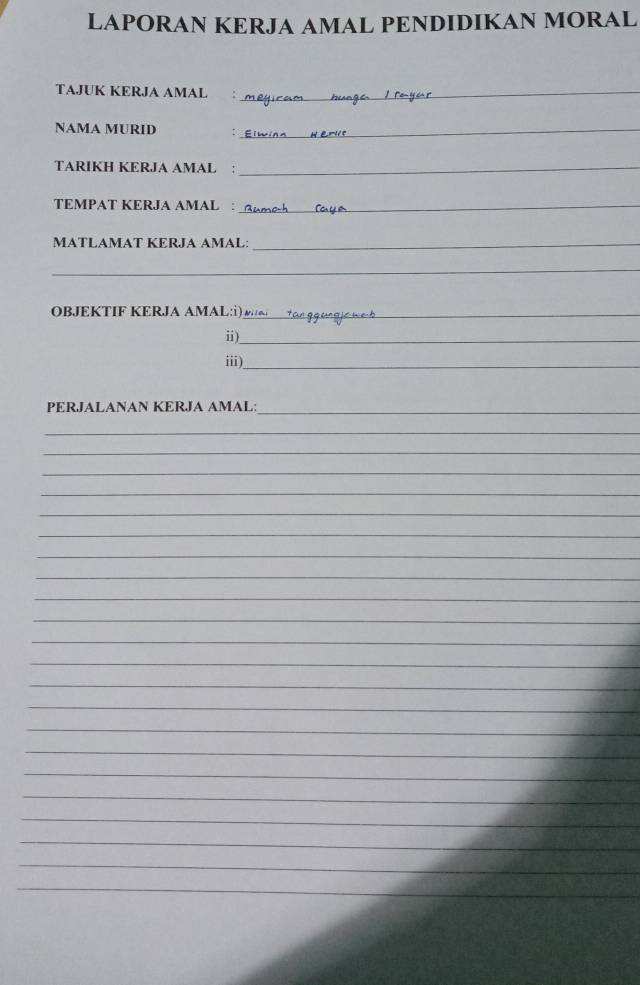 LAPORAN KERJA AMAL PENDIDIKAN MORAL
TAJUK KERJA AMAL : meyiram bunga / sayur
NAMA MURID : Elwinn
TARIKH KERJA AMAL :
TEMPAT KERJA AMAL : Rumah saya
MATLAMAT KERJA AMAL:
OBJEKTIF KERJA AMAL:i) Nilai tanggungjawab
ii)
iii)
PERJALANAN KERJA AMAL: